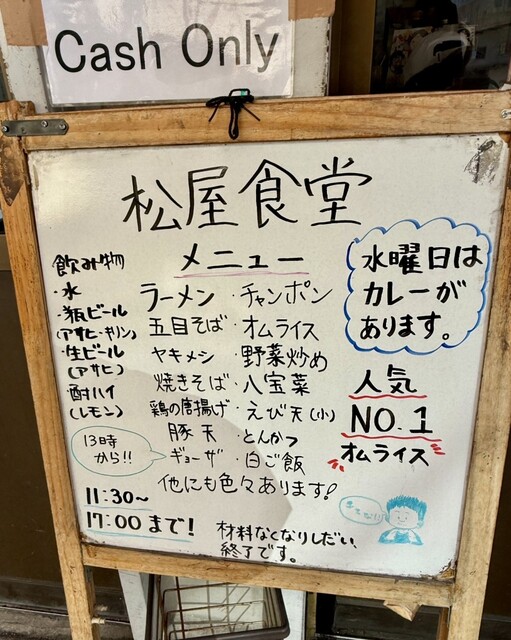 Cash Only
松屋食堂
飲み物
・水
・瓶ビール
(アサヒ・キリン)
・生ビール
(アサヒ)
・酎ハイ
(レモン)
メニュー
ラーメン・チャンポン
五目そば・オムライス
ヤキメシ・野菜炒め
焼きそば・八宝菜
鶏の唐揚げ・えび天(小)
豚天・とんかつ
ギョーザ・白ご飯
他にも色々あります!
水曜日は
カレーが
あります。
人気
NO.1
オムライス
13時
から!!
11:30~
17:00まで!
材料なくなりしだい、
終了です。